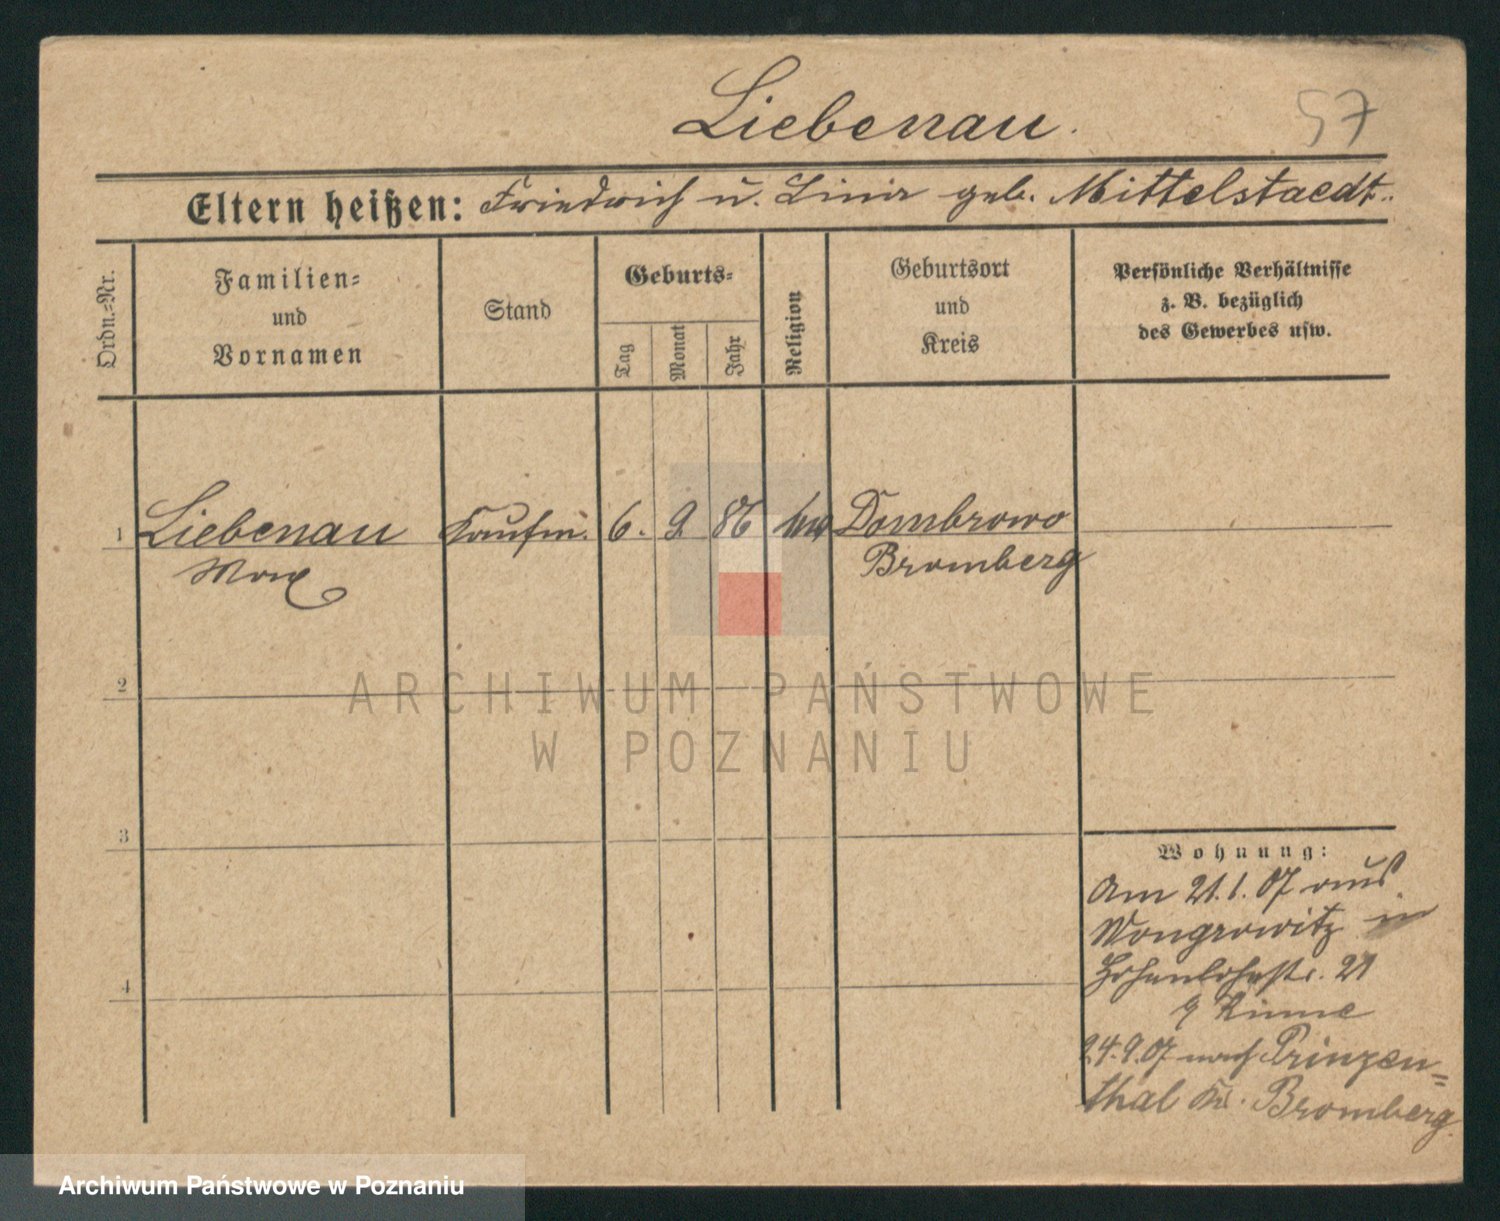 Liebenau.
57
Eltern heißen: Friedrich u. Linir geb. Mittelstaedt.
Ordn.-Nr.
Familien-
und
Vornamen
Stand
Geburts-
Tag
Monat
Jahr
Religion
Geburtsort
und
Kreis
Persönliche Verhältnisse
z. B. bezüglich
des Gewerbes usw.
1 Liebenau Kaufm. 6. 9 86 Dombrowo
Max Bromberg
2
ARCHIWUM PAŃSTWOWE
W POZNANIU
3
Wohnung:
Am 21.1.07 aus
Wongrowitz in
Hohenlohestr. 21
4
24.9.07 nach Prinzen-
thal Kr. Bromberg
Archiwum Państwowe w Poznaniu